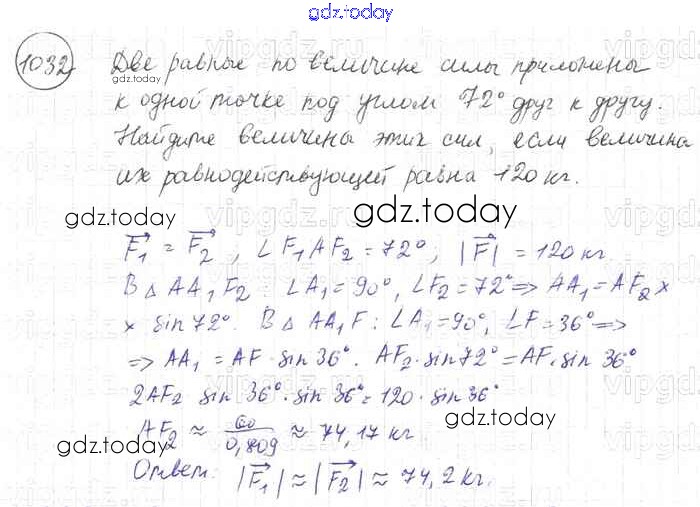 gdz.today
1032 Две равные по величине силы приложены
gdz.today
к одной точке под углом 72° друг к другу.
Найдите величины этих сил, если величина
их равнодействующей равна 120 кг.
gdz.today gdz.today
F₁ = F₂, ∠F₁AF₂ = 72°; |F| = 120 кг.
В △ AA₁F₂ : ∠A₁ = 90°, ∠F₂ = 72° => AA₁ = AF₂ x
x sin 72°. В △ AA₁F : ∠A₁ = 90°, ∠F = 36° =>
=> AA₁ = AF · sin 36°. AF₂ · sin 72° = AF · sin 36°
2AF₂ sin 36° · sin 36° = 120 · sin 36°
gdz.today
AF₂ ≈ 60/0,809 ≈ 74,17 кг
gdz.today gdz.today
Ответ: |F₁| ≈ |F₂| ≈ 74,2 кг.